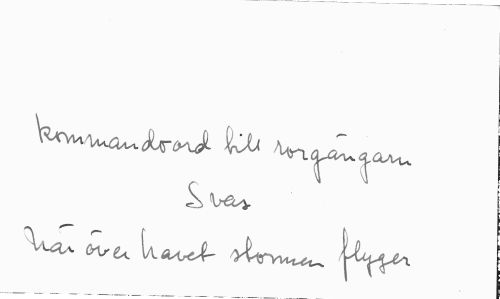 kommandoord till rorgängarn
Svas
När över havet stormen flyger